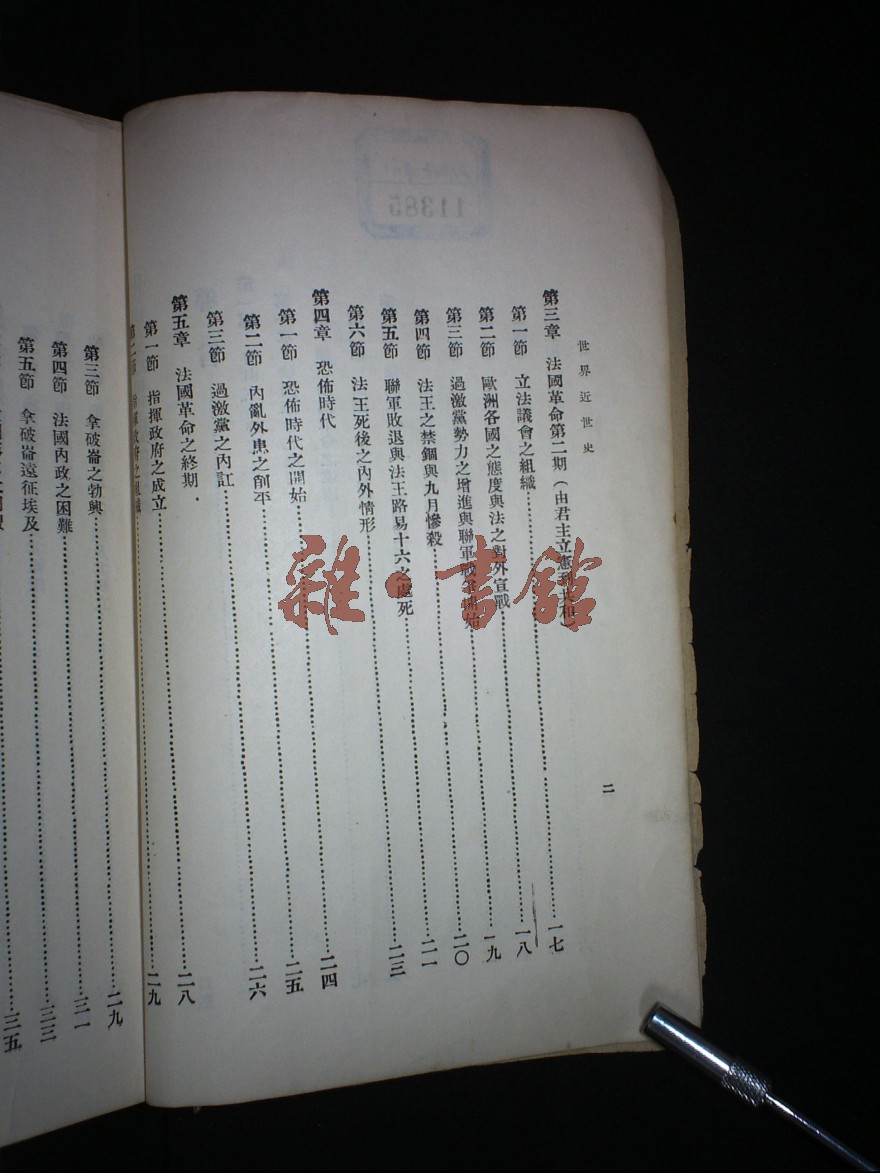 世界近世史
二
第三章　法國革命第二期（由君主立憲到共和）……一七
第一節　立法議會之組織……一八
第二節　歐洲各國之態度與法之對外宣戰……一九
第三節　過激黨勢力之增進與聯軍戰爭開始……二〇
第四節　法王之禁錮與九月慘殺……二一
第五節　聯軍敗退與法王路易十六之處死……二三
第六節　法王死後之內外情形
第四章　恐佈時代……二四
第一節　恐佈時代之開始……二五
第二節　內亂外患之削平……二六
第三節　過激黨之內訌
第五章　法國革命之終期……二八
第一節　指揮政府之成立……二九
第三節　拿破崙之勃興……二九
第四節　法國內政之困難……三一
第五節　拿破崙遠征埃及……三三
三五
雜·書館
11385